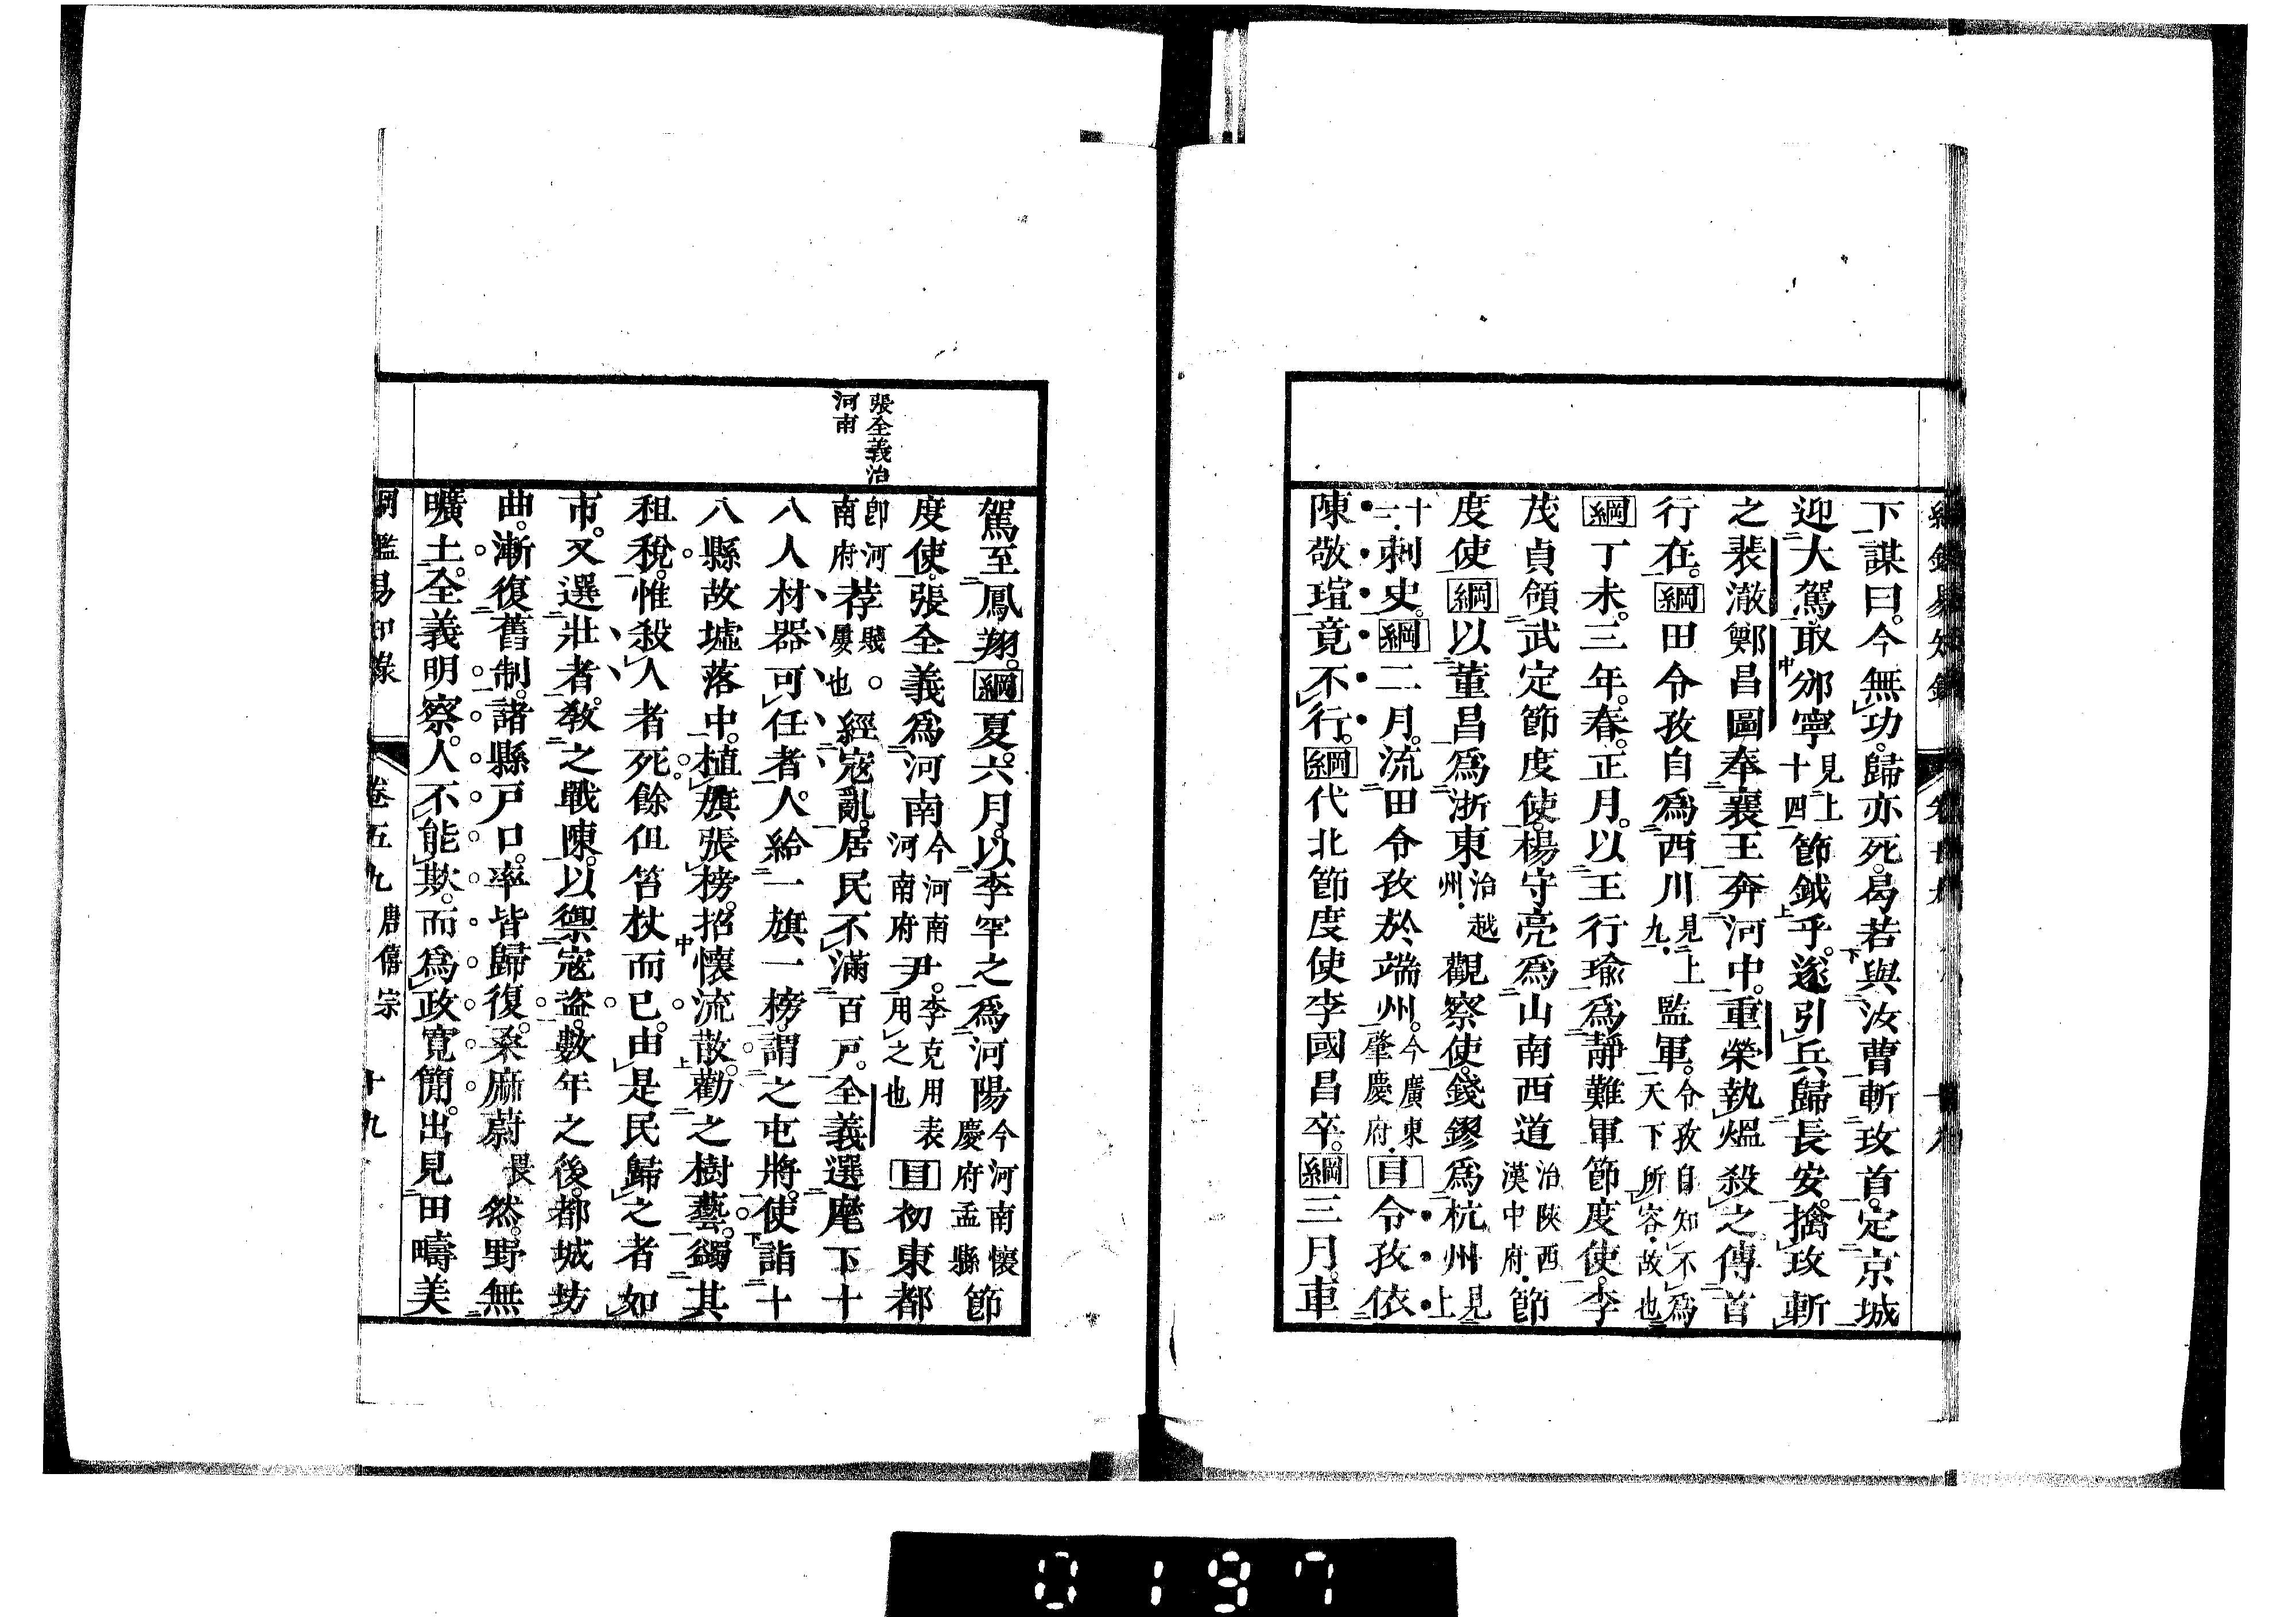 下謀曰。今無功。歸亦死。曷若與汝曹斬玫首。定京城
迎大駕。取邠寧見上十四節鉞乎。遂引兵歸長安。擒玫斬
之。裴澈鄭昌圖奉襄王奔河中。重榮執熅殺之。傳首
行在。綱田令孜自爲西川見上九監軍。令孜自知不爲天下所容故也
綱丁未。三年。春。正月。以王行瑜爲靜難軍節度使。李
茂貞領武定節度使。楊守亮爲山南西道治陝西漢中府節
度使綱以董昌爲浙東治越州觀察使。錢鏐爲杭州見上
十一刺史。綱二月。流田令孜於端州。今廣東肇慶府目令孜依
陳敬瑄。竟不行。綱代北節度使李國昌卒。綱三月。車
駕至鳳翔。綱夏。六月。以李罕之爲河陽今河南懷慶府孟縣節
度使。張全義爲河南今河南河南府尹。李克用表用之也目初東都
張全義治河南
卽河南府荐賤屢也經寇亂。居民不滿百戸。全義選麾下十
八人材器可任者。人給一旗一榜。謂之屯將。使詣十
八縣故墟落中。植旗張榜。招懷流散。勸之樹藝。蠲其
租稅。惟殺人者死。餘但笞杖而已。由是民歸之者如
市。又選壯者。敎之戰陳。以禦寇盜。數年之後。都城坊
曲。漸復舊制。諸縣戸口。率皆歸復。桑麻蔚畏然。野無
曠土。全義明察。人不能欺。而爲政寬簡。出見田疇美
綱鑑易知錄 卷五九 唐僖宗 十九
0197